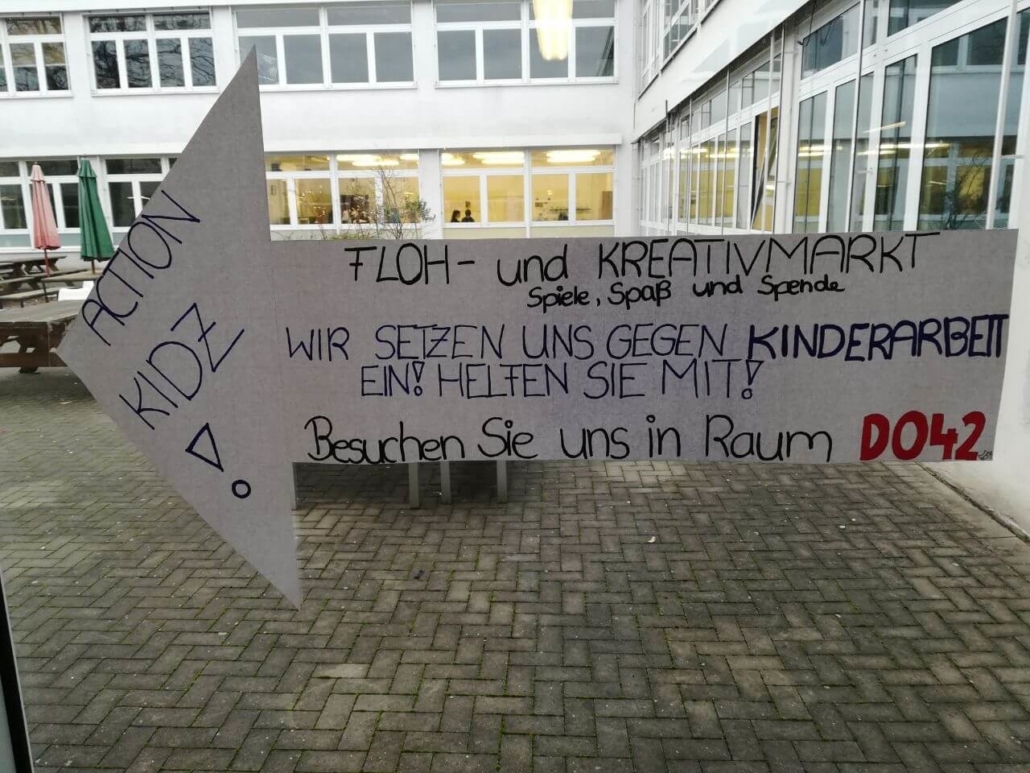 ACTION
KIDZ
!
FLOH- und KREATIVMARKT
Spiele, Spaß und Spende
WIR SETZEN UNS GEGEN KINDERARBEIT
EIN! HELFEN SIE MIT!
Besuchen Sie uns in Raum DO42